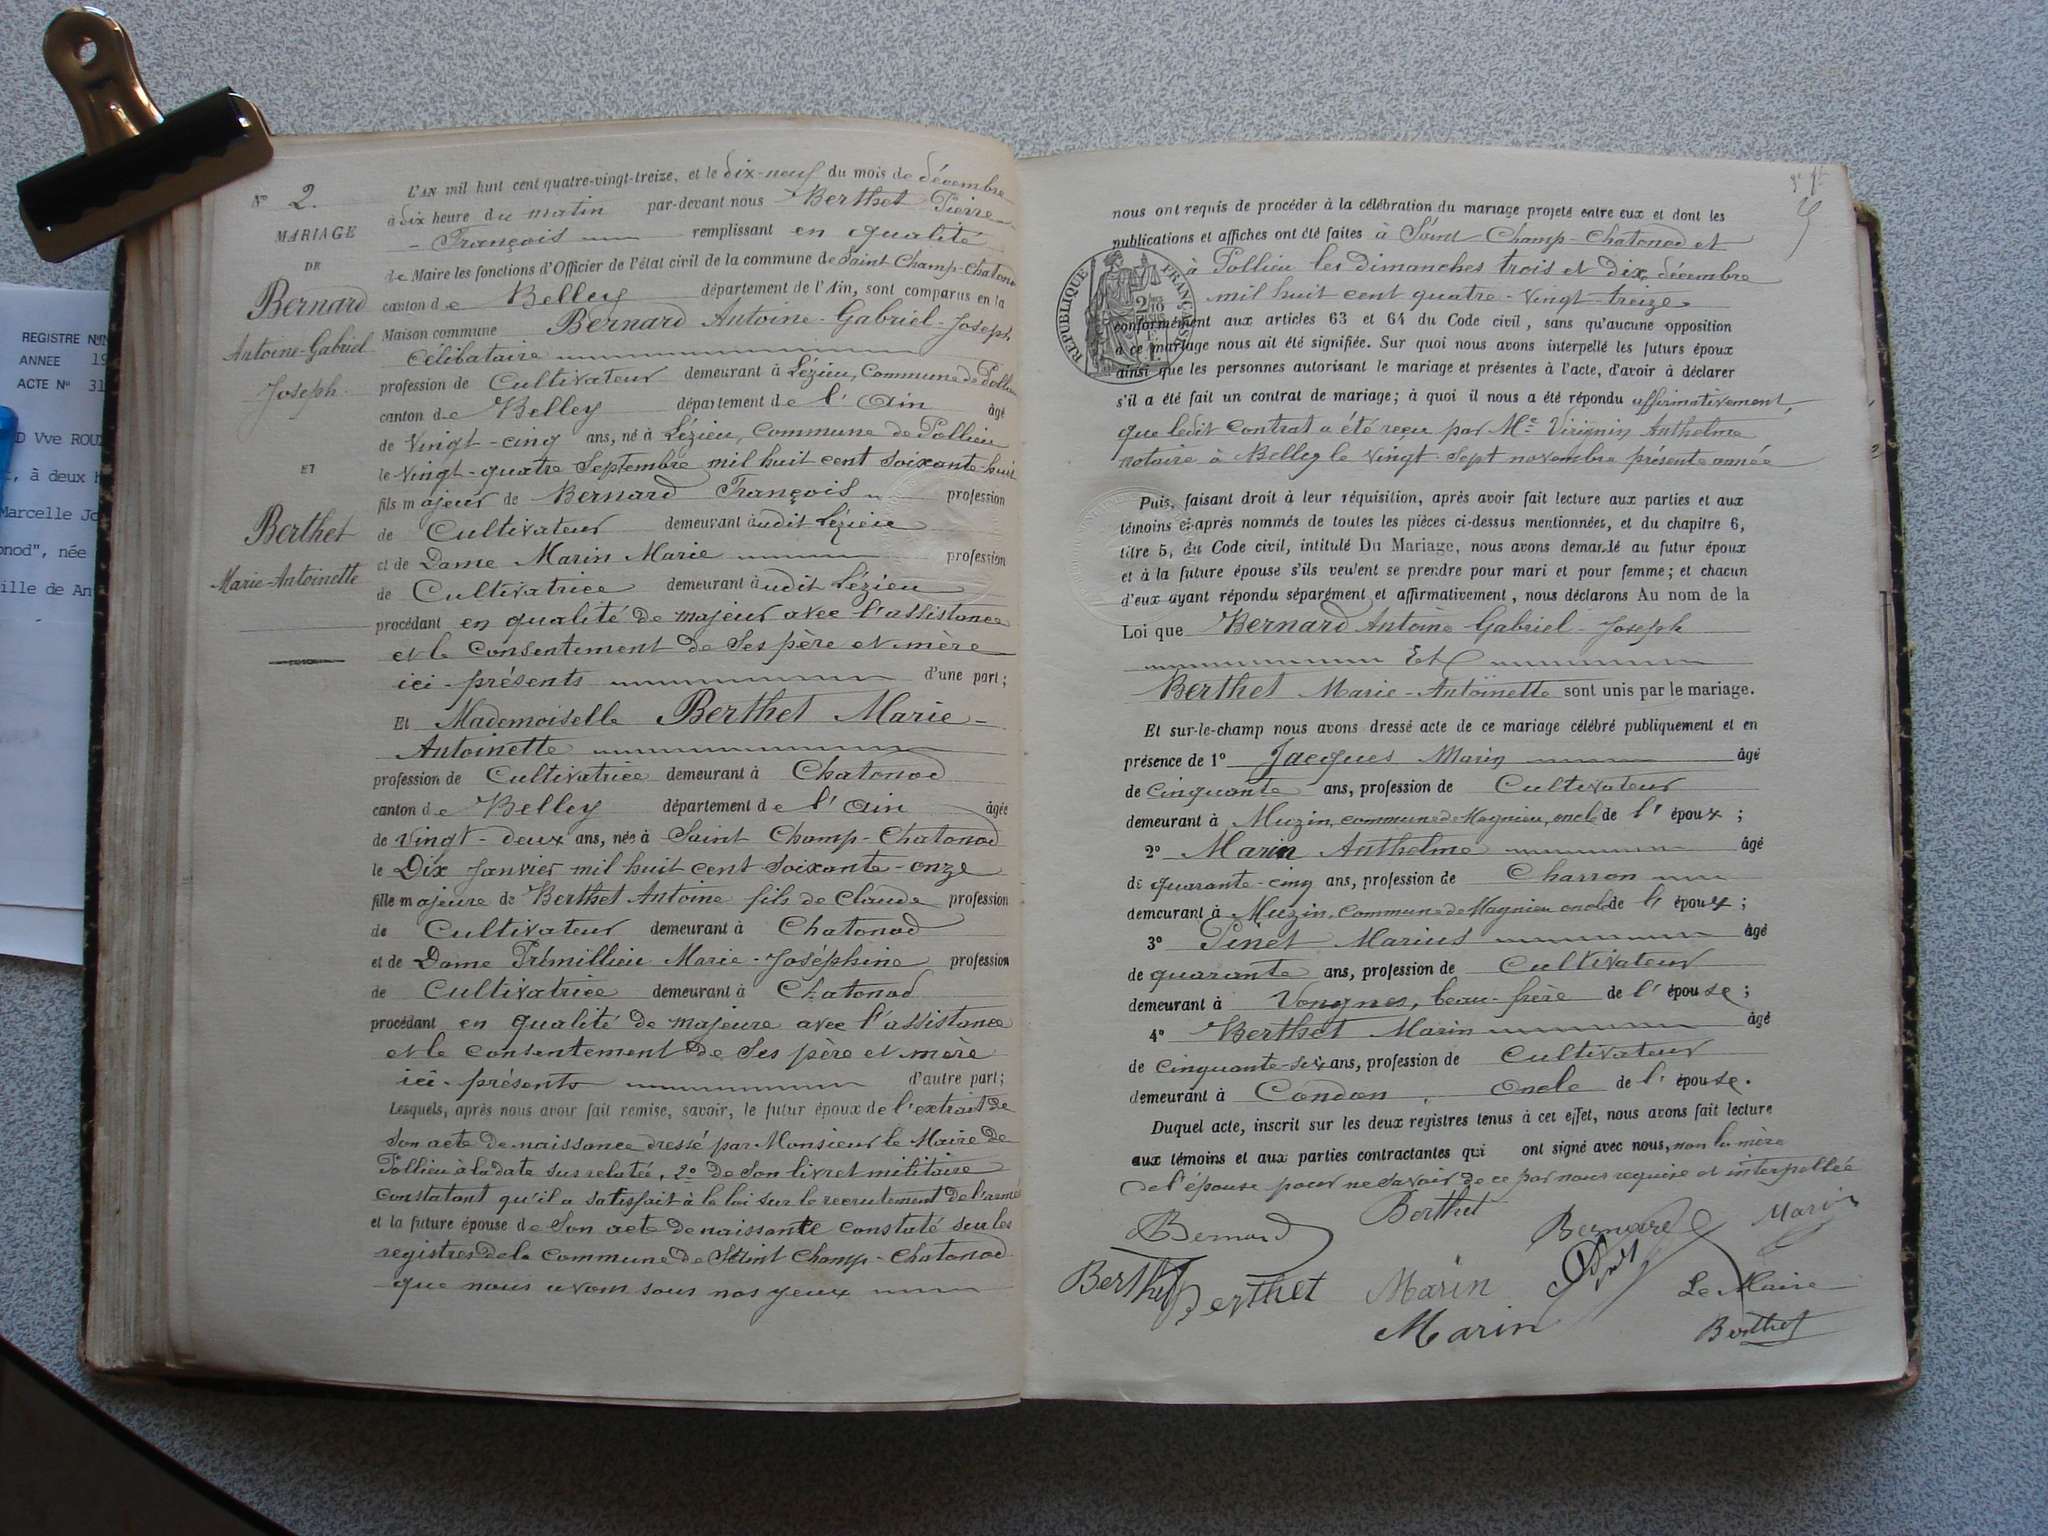 REGISTRE
ANNEE 19
ACTE N° 31
D Vve ROU
, à deux h
Marcelle Jo
onod", née
ille de An
N° 2.
MARIAGE
DE
Bernard
Antoine-Gabriel
Joseph
ET
Berthet
Marie-Antoinette
L'AN mil huit cent quatre-vingt-treize, et le dix-neuf du mois de décembre
à dix heure du matin par-devant nous Berthet Pierre
-François remplissant en qualité
de Maire les fonctions d'Officier de l'état civil de la commune de Saint-Champ-Chatonod
canton de Belley département de l'Ain, sont comparus en la
Maison commune Bernard Antoine-Gabriel-Joseph,
Célibataire
profession de Cultivateur demeurant à Lézieu, Commune de Pollieu
canton de Belley département de l'Ain âgé
de Vingt-cinq ans, né à Lézieu, Commune de Pollieu
le Vingt-quatre Septembre mil huit cent soixante-huit
fils majeur de Bernard François profession
de Cultivateur demeurant audit Lézieu
et de Dame Marin Marie profession
de Cultivatrice demeurant audit Lézieu
procédant en qualité de majeur avec l'assistance
et le consentement de Ses père et mère
ici-présents d'une part;
Et Mademoiselle Berthet Marie-
Antoinette
profession de Cultivatrice demeurant à Chatonod
canton de Belley département de l'Ain âgée
de Vingt-deux ans, née à Saint Champ-Chatonod
le Dix Janvier mil huit cent Soixante-onze
fille majeure de Berthet Antoine fils de Claude profession
de Cultivateur demeurant à Chatonod
et de Dame Trémillieu Marie-Joséphine profession
de Cultivatrice demeurant à Chatonod
procédant en qualité de majeure avec l'assistance
et le consentement de Ses père et mère
ici-présents d'autre part;
Lesquels, après nous avoir fait remise, savoir, le futur époux de l'extrait de
Son acte de naissance dressé par Monsieur le Maire de
Pollieu à la date sus relatée, 2° de Son livret militaire
constatant qu'il a satisfait à la loi sur le recrutement de l'armée
et la future épouse de Son acte de naissante constaté sur les
registres de la Commune de Saint Champ-Chatonod
que nous avons sous nos yeux
nous ont requis de procéder à la célébration du mariage projeté entre eux et dont les
publications et affiches ont été faites à Saint Champ-Chatonod et
à Pollieu les dimanches trois et dix décembre
mil huit cent quatre-vingt-treize
RÉPUBLIQUE FRANÇAISE
conformément aux articles 63 et 64 du Code civil, sans qu'aucune opposition
à ce mariage nous ait été signifiée. Sur quoi nous avons interpellé les futurs époux
ainsi que les personnes autorisant le mariage et présentes à l'acte, d'avoir à déclarer
s'il a été fait un contrat de mariage; à quoi il nous a été répondu affirmativement,
que ledit contrat a été reçu par Me Virignin Anthelme
notaire à Belley le vingt-sept novembre présente année
Puis, faisant droit à leur réquisition, après avoir fait lecture aux parties et aux
témoins ci-après nommés de toutes les pièces ci-dessus mentionnées, et du chapitre 6,
titre 5, du Code civil, intitulé Du Mariage, nous avons demandé au futur époux
et à la future épouse s'ils veulent se prendre pour mari et pour femme; et chacun
d'eux ayant répondu séparément et affirmativement, nous déclarons Au nom de la
Loi que Bernard Antoine Gabriel-Joseph
Et
Berthet Marie-Antoinette sont unis par le mariage.
Et sur-le-champ nous avons dressé acte de ce mariage célébré publiquement et en
présence de 1° Jacques Marin âgé
de Cinquante ans, profession de Cultivateur
demeurant à Muzin, commune de Magnieu, oncle de l'époux;
2° Marin Anthelme âgé
de quarante-cinq ans, profession de Charron
demeurant à Muzin, Commune de Magnieu oncle de l'époux;
3° Pinet Marius âgé
de quarante ans, profession de Cultivateur
demeurant à Vongnes, beau-frère de l'épouse;
4° Berthet Marin âgé
de Cinquante-six ans, profession de Cultivateur
demeurant à Condon, Oncle de l'épouse.
Duquel acte, inscrit sur les deux registres tenus à cet effet, nous avons fait lecture
aux témoins et aux parties contractantes qui ont signé avec nous, non la mère
de l'épouse pour ne savoir de ce par nous requise et interpellée
Bernard Berthet Bernard Marin
Berthet Berthet Marin Le Maire
Marin Berthet